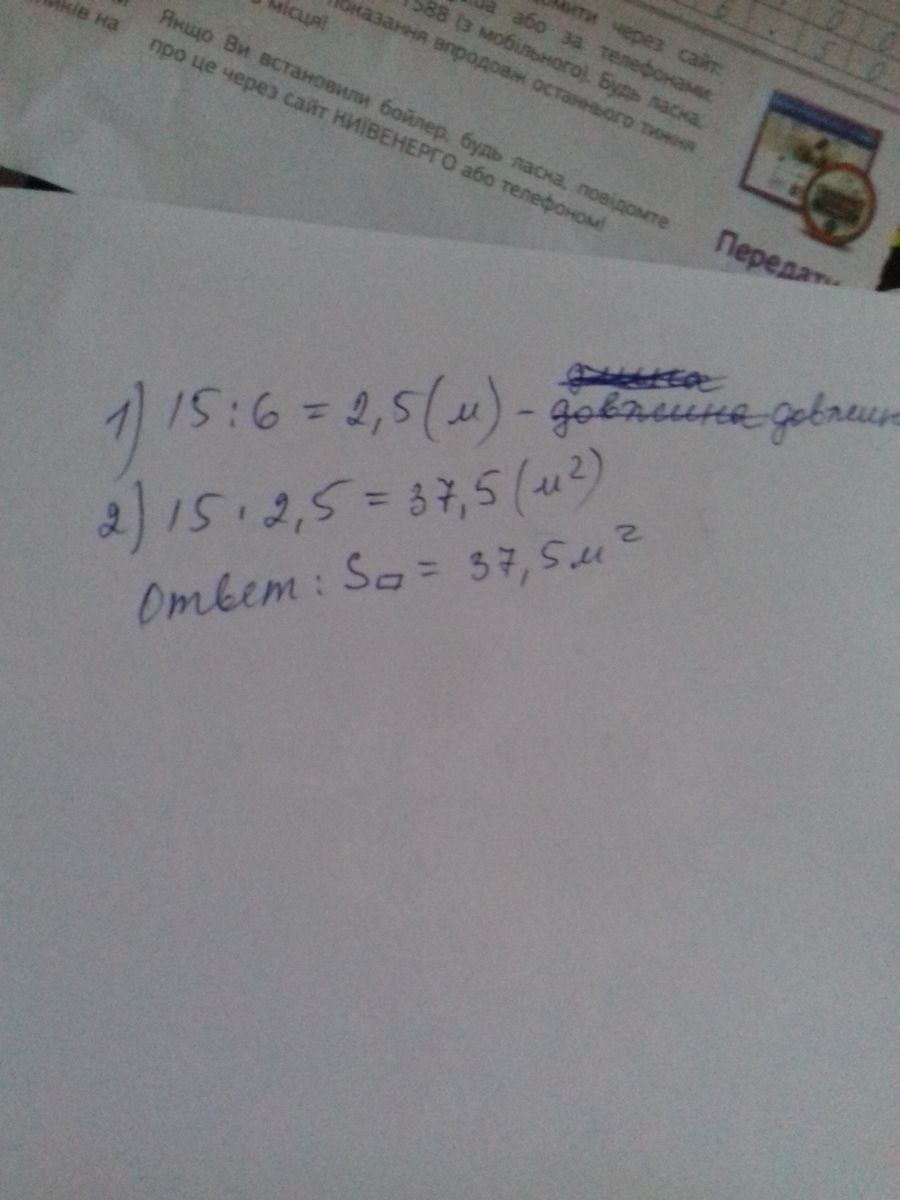 через сайт:
або за телефонами:
588 (з мобільного). Будь ласка,
показання впродовж останнього тижня
місяця!
на
Якщо Ви встановили бойлер, будь ласка, повідомте
про це через сайт КИЇВЕНЕРГО або телефоном!
1) 15 : 6 = 2,5 (м) -
2) 15 · 2,5 = 37,5 (м²)
Ответ: S▱ = 37,5 м²